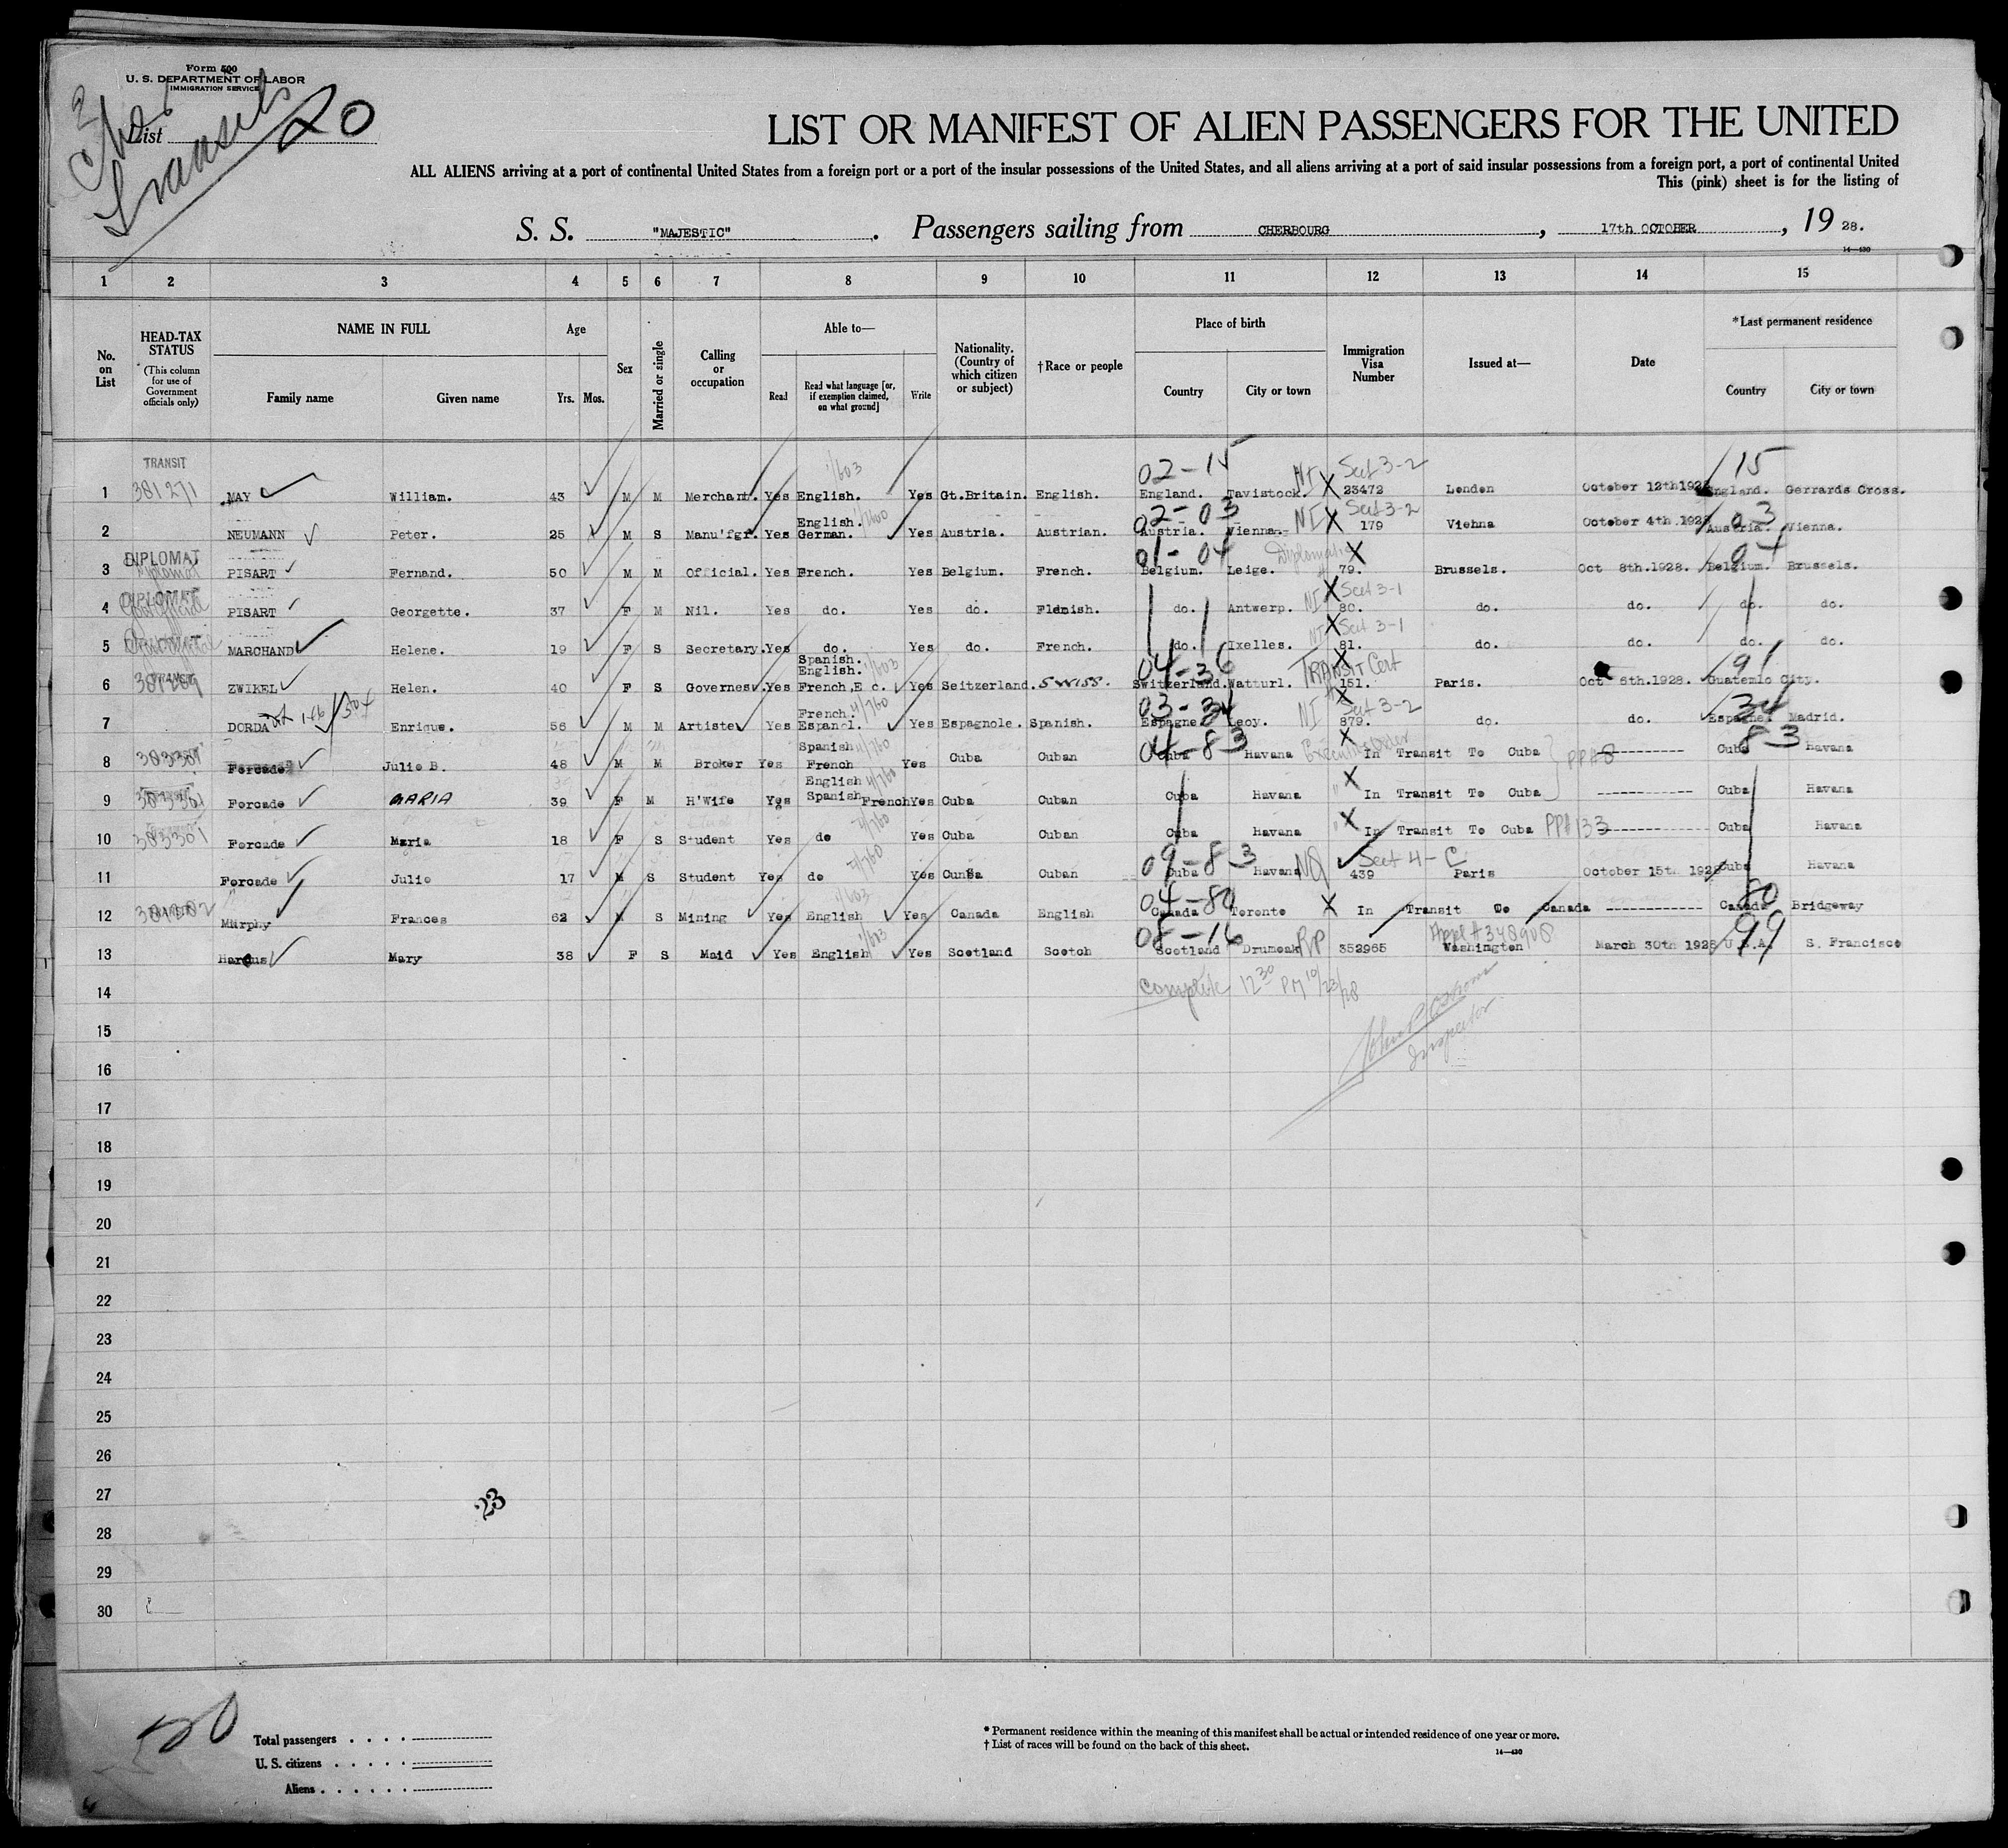 Form 500
U. S. DEPARTMENT OF LABOR
IMMIGRATION SERVICE
List 20
Transits
LIST OR MANIFEST OF ALIEN PASSENGERS FOR THE UNITED
ALL ALIENS arriving at a port of continental United States from a foreign port or a port of the insular possessions of the United States, and all aliens arriving at a port of said insular possessions from a foreign port, a port of continental United
This (pink) sheet is for the listing of
S. S. "MAJESTIC" . Passengers sailing from CHERBOURG , 17th OCTOBER , 19 28.
14—430
1 2 3 4 5 6 7 8 9 10 11 12 13 14 15
No. on List
HEAD-TAX STATUS (This column for use of Government officials only)
NAME IN FULL
Family name Given name
Age
Yrs. Mos.
Sex
Married or single
Calling or occupation
Able to—
Read Read what language [or, if exemption claimed, on what ground] Write
Nationality. (Country of which citizen or subject)
†Race or people
Place of birth
Country City or town
Immigration Visa Number
Issued at—
Date
*Last permanent residence
Country City or town
TRANSIT 1/603 02-15 NI Sect 3-2 15
1 381271 MAY William. 43 M M Merchant. Yes English. Yes Gt.Britain. English. England. Tavistock. X 23472 London October 12th1928 England. Gerrards Cross.
02-03 NI Sect 3-2 03
2 NEUMANN Peter. 25 M S Manu'fgr. Yes English. German. Yes Austria. Austrian. Austria. Vienna. X 179 Vienna October 4th.1928 Austria. Vienna.
DIPLOMAT 01-04 Diplomatic X 04
3 PISART Fernand. 50 M M Official. Yes French. Yes Belgium. French. Belgium. Leige. 79. Brussels. Oct 8th.1928. Belgium. Brussels.
DIPLOMAT NI X Sect 3-1
4 PISART Georgette. 37 F M Nil. Yes do. Yes do. Flemish. do. Antwerp. 80. do. do. do. do.
NI X Sect 3-1
5 MARCHAND Helene. 19 F S Secretary. Yes do. Yes do. French. do. Ixelles. 81. do. do. do. do.
04-36 TRANSIT Cert X 91
6 381269 ZWIKEL Helen. 40 F S Governess. Yes Spanish. English. French,E c. Yes Seitzerland. SWISS. Switzerland. Watturl. 151. Paris. Oct 6th.1928. Guatemlo City.
03-34 NI X Sect 3-2 34
7 DORDA Enrique. 56 M M Artiste Yes French. Espanol. Yes Espagnole. Spanish. Espagne. Leoy. 879. do. do. Espagne. Madrid.
04-83 X 83
8 383301 Forcade Julio B. 48 M M Broker Yes Spanish French Yes Cuba Cuban Cuba Havana In Transit To Cuba PP#8 ----------- Cuba Havana
9 383301 Forcade MARIA 39 F M H'Wife Yes English Spanish French Yes Cuba Cuban Cuba Havana X In Transit To Cuba ------------ Cuba Havana
10 383301 Forcade Maria 18 F S Student Yes do Yes Cuba Cuban Cuba Havana X In Transit To Cuba PP#133 ------------ Cuba Havana
09-83 NQ Sect 4-C
11 Forcade Julio 17 M S Student Yes do Yes Cunba Cuban Cuba Havana 439 Paris October 15th 1928 Cuba Havana
04-80 80
12 Murphy Frances 62 M S Mining Yes English Yes Canada English Canada Toronto X In Transit To Canada ------------ Canada Bridgeway
08-16 Appl #348908 99
13 Harcus Mary 38 F S Maid Yes English Yes Scotland Scotch Scotland Drumoak RP 352965 Washington March 30th 1928 U.S.A. S. Francisco
14 Complete 12 30 PM 10/23/28
15 Inspector
16
17
18
19
20
21
22
23
24
25
26
27 23
28
29
30
20
Total passengers . . . .
U. S. citizens . . . . .
Aliens . . . . . .
* Permanent residence within the meaning of this manifest shall be actual or intended residence of one year or more.
† List of races will be found on the back of this sheet.
14—430